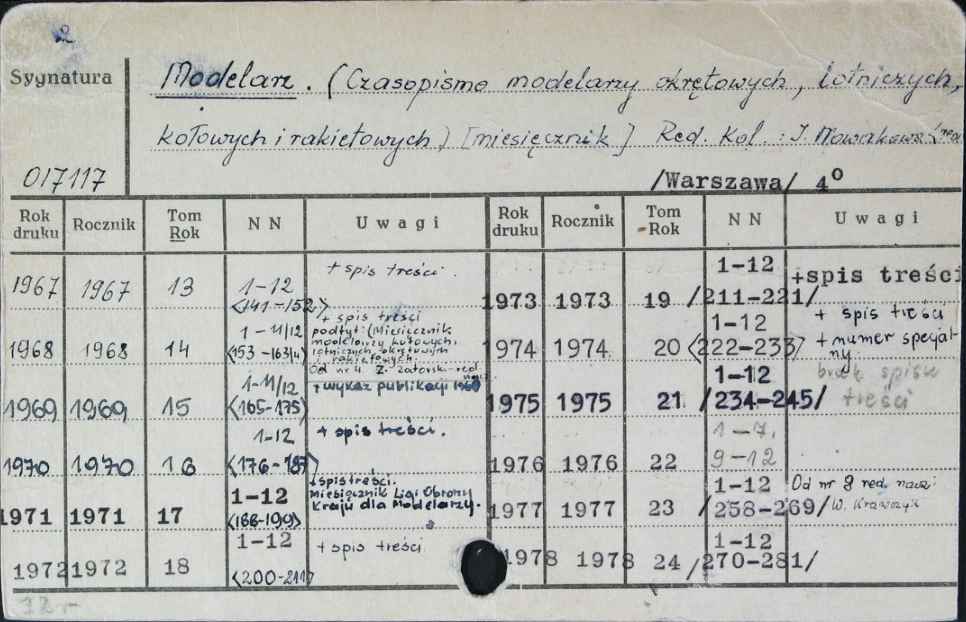 2
Sygnatura
Modelarz. (Czasopismo modelarzy okrętowych, lotniczych,
kołowych i rakietowych) [miesięcznik] Red. Kol.: J. Nowakowska
017117
/Warszawa/ 4º
Rok druku Rocznik Tom Rok N N Uwagi Rok druku Rocznik Tom Rok N N Uwagi
1967 1967 13 1-12 <141-152> + spis treści.
1968 1968 14 1-11/12 <153-163/4> + spis treści
podtyt: (Miesięcznik
modelarzy kołowych,
lotniczych, okrętowych
i rakietowych.
Od nr 4 Z. Zatorski-red.
1969 1969 15 1-11/12 <165-175> + wykaz publikacji 1969
1970 1970 16 1-12 <176-187> + spis treści.
1971 1971 17 1-12 <188-199> + spis treści.
Miesięcznik Ligi Obrony
Kraju dla Modelarzy.
1972 1972 18 1-12 <200-211> + spis treści
1973 1973 19 1-12 /211-221/ +spis treści
1974 1974 20 1-12 <222-233> + spis treści
+ numer specjal-
ny.
1975 1975 21 1-12 /234-245/ brak spisu
treści
1976 1976 22 1-7, 9-12
1977 1977 23 1-12 /258-269/ Od nr 8 red. nacz:
W. Krawczyk
1978 1978 24 1-12 /270-281/